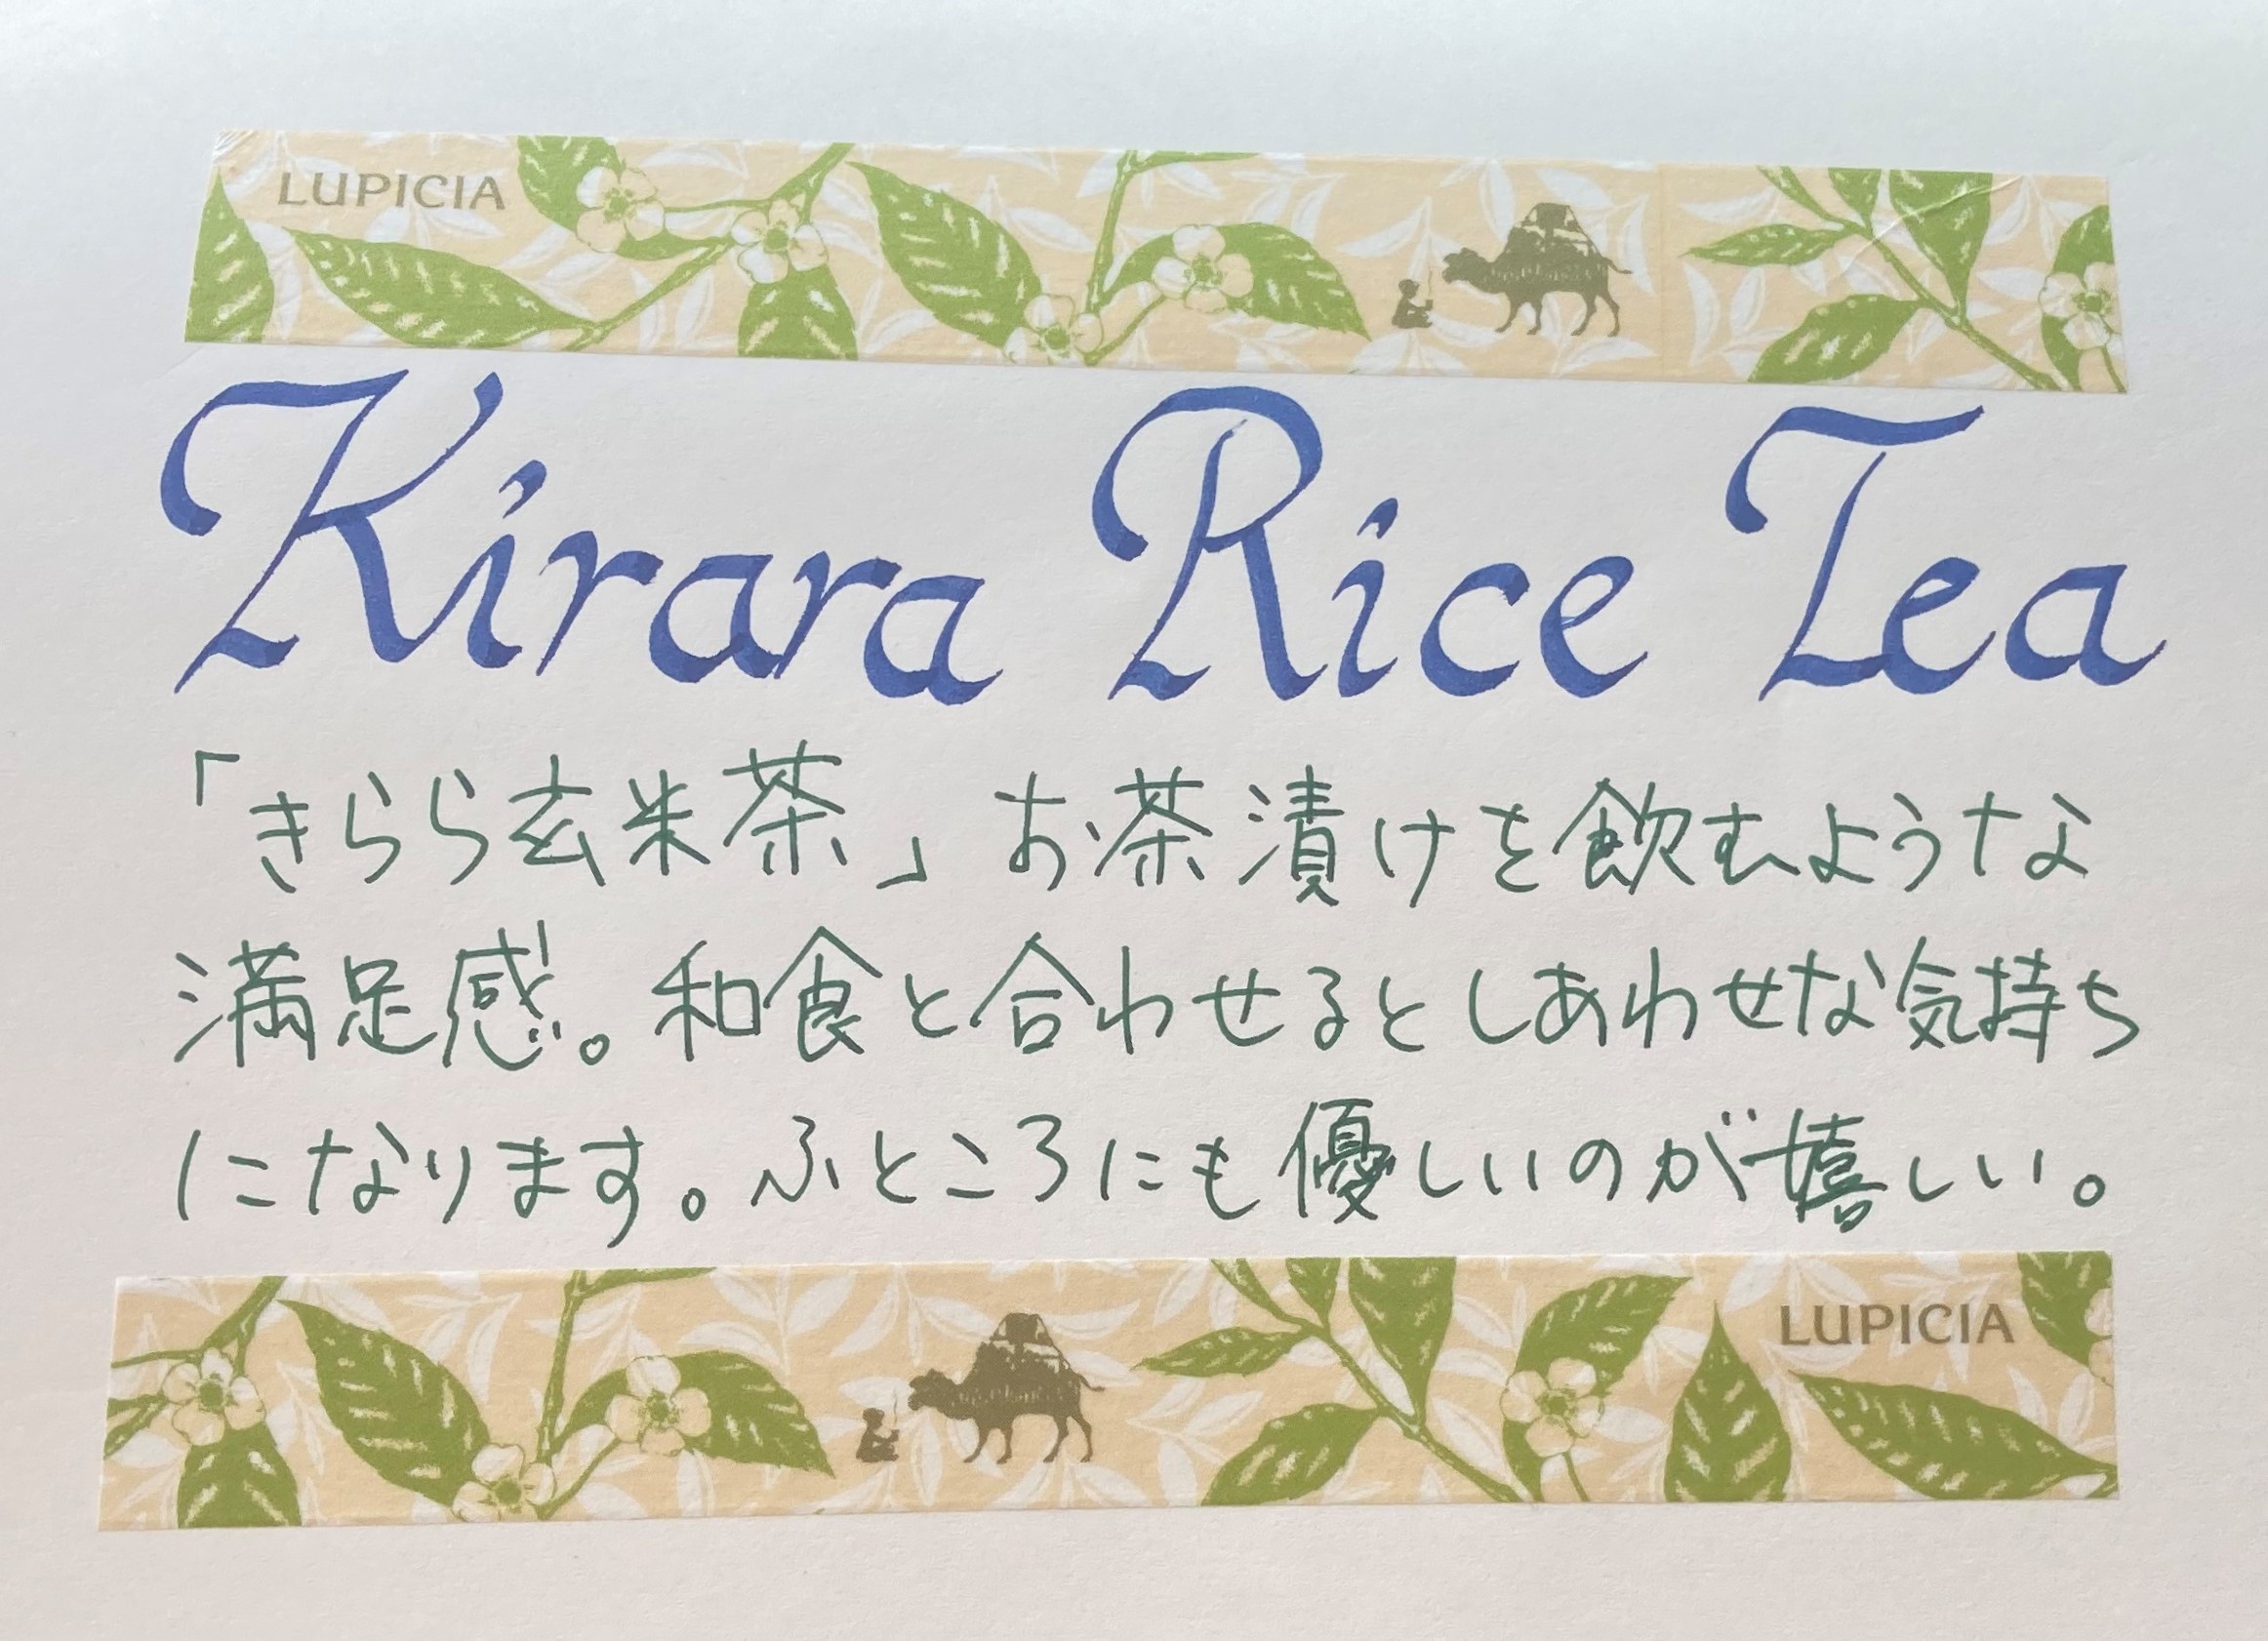 LUPICIA
Kirara Rice Tea
「きらら玄米茶」お茶漬けを飲むような
満足感。和食と合わせるとしあわせな気持ち
になります。ふところにも優しいのが嬉しい。
LUPICIA